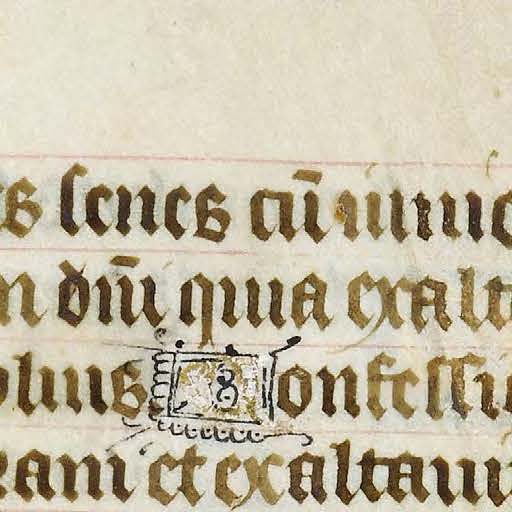 s senes cū iunio
n dn̄i quia exalta
olius Confessio
ram et exaltaui